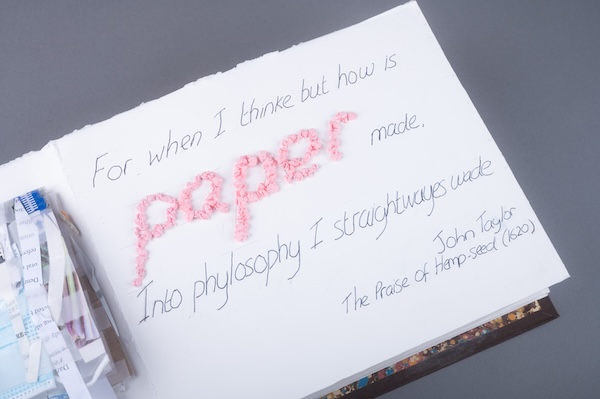 For when I thinke but how is
paper made,
Into phylosophy I straightwayes wade
John Taylor
The Praise of Hemp-seed (1620)